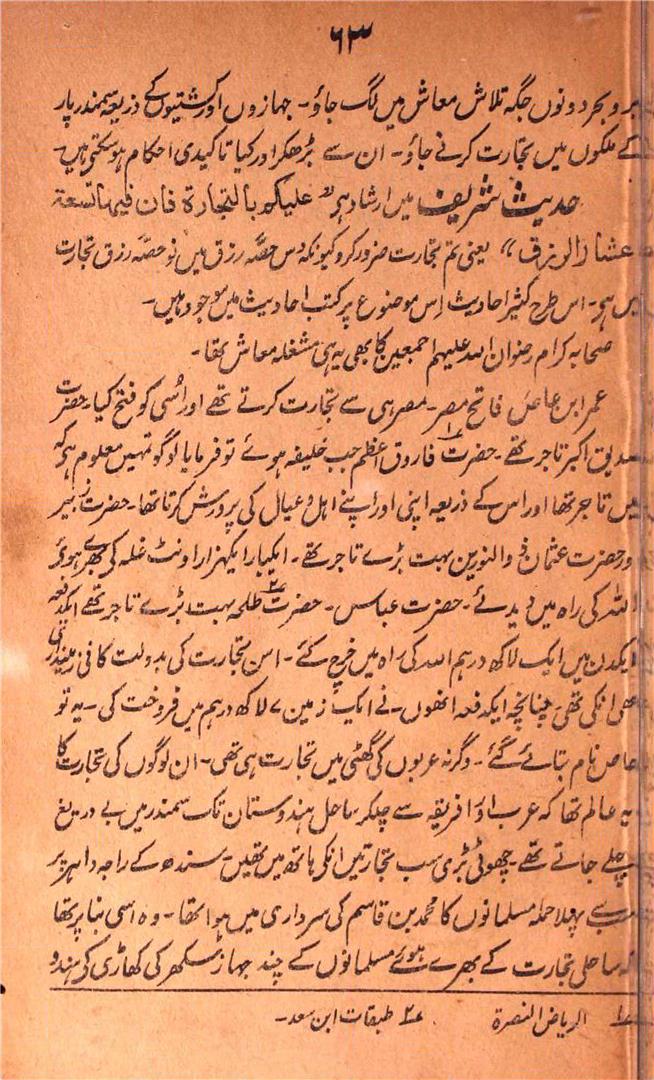 ۶۳
بر و بحر دونوں جگہ تلاش معاش میں لگ جاؤ۔ جہازوں اور کشتیوں کے ذریعہ سمندر پار
کے ملکوں میں تجارت کرنے جاؤ۔ ان سے بڑھکر اور کیا تاکیدی احکام ہوسکتی ہیں۔
حدیث شریف میں ارشاد ہی "علیکم بالتجارة فان فیہا تسعة
عشار الرزق" یعنی تم تجارت ضرور کرو کیونکہ دس حصّہ رزق میں نو حصّہ رزق تجارت
میں ہی۔ اس طرح کثیر احادیث اِس موضوع پر کتب احادیث میں موجود ہیں۔
صحابہ کرام رضوان اللہ علیہم اجمعین کا بھی یہ ہی مشغلہ معاش تھا۔
عمر ابن عاص فاتح مصر۔ مصر ہی سے تجارت کرتے تھے اور اُسی کو فتح کیا۔ حضرت
صدیق اکبر تاجر تھے۔ حضرت فاروق اعظم جب خلیفہ ہوئے تو فرمایا لوگو تمہیں معلوم ہی کہ
میں تاجر تھا اور اس کے ذریعہ اپنی اور اپنے اہل و عیال کی پرورش کرتا تھا۔ حضرت زبیر
ور حضرت عثمان ذو النورین بہت بڑے تاجر تھے۔ ایکبار ایکہزار اونٹ غلہ کی بھرے ہوئر
اللہ کی راہ میں دیدئے۔ حضرت عباس۔ حضرت طلحہ بہت بڑے تاجر تھے ایکدفعہ
ایکدن میں ایک لاکھ درہم اللہ کی راہ میں خرچ کئے۔ اس تجارت کی بدولت کافی زمینداری
بھی انکی تھی۔ چنانچہ ایکدفعہ انھوں نے ایک زمین ۷ لاکھ درہم میں فروخت کی۔ یہ تو
خاص نام بتائے گئے۔ وگرنہ عربوں کی گھٹی میں تجارت ہی تھی۔ ان لوگوں کی تجارت کا
یہ عالم تھا کہ عرب اور افریقہ سے چلکر ساحل ہندوستان تک سمندر میں بے دریغ
چلے جاتے تھے۔ چھوٹی بڑی سب تجارتیں انکی ہاتھ میں تھیں۔ سندھ کے راجہ داہر پر
سب سے پہلا حملہ مسلمانوں کا محمد بن قاسم کی سرداری میں ہوا تھا۔ وہ اسی بنا پر تھا
کہ ساحلی تجارت کے بھرے ہوئے مسلمانوں کے چند جہاز سکھر کی کھاڑی کی ہندو
۱؎ الریاض النصرة ۲؎ طبقات ابن سعد۔